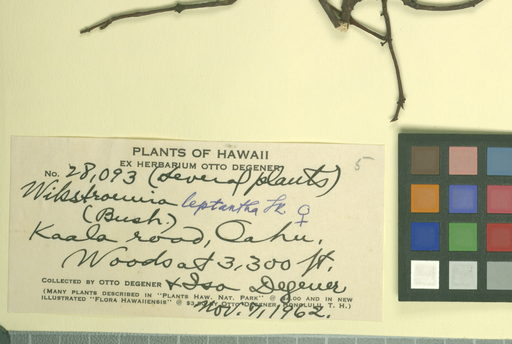 5
PLANTS OF HAWAII
EX HERBARIUM OTTO DEGENER
No. 28,093 (several plants)
Wikstroemia leptantha Sk. ♀
(Bush)
Kaala road, Oahu.
Woods at 3,300 ft.
COLLECTED BY OTTO DEGENER & Isa Degener
(MANY PLANTS DESCRIBED IN "PLANTS HAW. NAT. PARK" @ $4.00 AND IN NEW
ILLUSTRATED "FLORA HAWAIIENSIS" @ BY OTTO DEGENER, HONOLULU, T. H.)
Nov. 7, 1962.